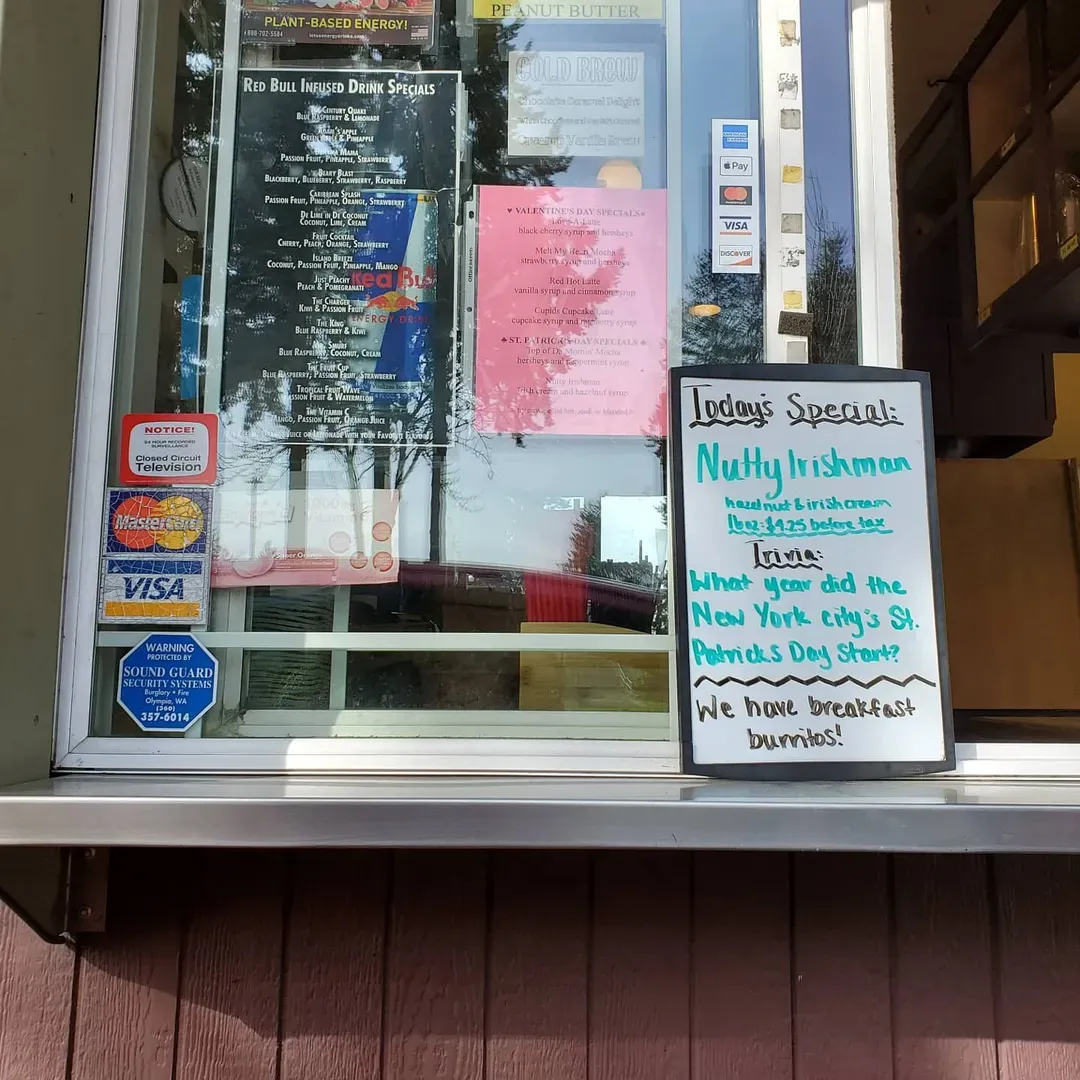 PLANT-BASED ENERGY!
PEANUT BUTTER
RED BULL INFUSED DRINK SPECIALS
THE CENTURY QUAKE
BLUE RASPBERRY & LEMONADE
ADAM'S APPLE
GREEN APPLE & PINEAPPLE
MAMA
PASSION FRUIT, PINEAPPLE, STRAWBERRY
BEARY BLAST
BLACKBERRY, BLUEBERRY, STRAWBERRY, RASPBERRY
CARIBBEAN SPLASH
PASSION FRUIT, PINEAPPLE, ORANGE, STRAWBERRY
DE LIME IN DE COCONUT
COCONUT, LIME, CREAM
FRUIT COCKTAIL
CHERRY, PEACH, ORANGE, STRAWBERRY
ISLAND BREEZE
COCONUT, PASSION FRUIT, PINEAPPLE, MANGO
JUST PEACHY
PEACH & POMEGRANATE
THE CHARGER
KIWI & PASSION FRUIT
THE KING
BLUE RASPBERRY & KIWI
SMURF
BLUE RASPBERRY, COCONUT, CREAM
THE FRUIT CUP
BLUE RASPBERRY, PASSION FRUIT, STRAWBERRY
TROPICAL FRUIT WAVE
PASSION FRUIT & WATERMELON
THE VITAMIN C
MANGO, PASSION FRUIT, ORANGE JUICE
JUICE OR LEMONADE WITH YOUR FAVORITE FLAVOR
Red Bull
ENERGY DRINK
COLD BREW
Chocolate Caramel Delight
Vanilla
♥ VALENTINE'S DAY SPECIALS ♥
Love-A-Latte
black cherry syrup and hersheys
Melt My Heart Mocha
strawberry syrup and hersheys
Red Hot Latte
vanilla syrup and cinnamon syrup
Cupids Cupcake Latte
cupcake syrup and raspberry syrup
♣ ST. PATRICK'S DAY SPECIALS ♣
Top of Da Mornin' Mocha
hersheys and peppermint syrup
Nutty Irishman
irish cream and hazelnut syrup
AMERICAN EXPRESS
Pay
mastercard
VISA
DISCOVER
NOTICE!
24 HOUR RECORDED
SURVEILLANCE
Closed Circuit
Television
MasterCard
VISA
WARNING
PROTECTED BY
SOUND GUARD
SECURITY SYSTEMS
Burglary • Fire
Olympia, WA
(360)
357-6014
Today's Special:
Nutty Irishman
hazelnut & irish cream
16oz: $4.25 before tax
Trivia:
What year did the
New York city's St.
Patricks Day start?
We have breakfast
burritos!